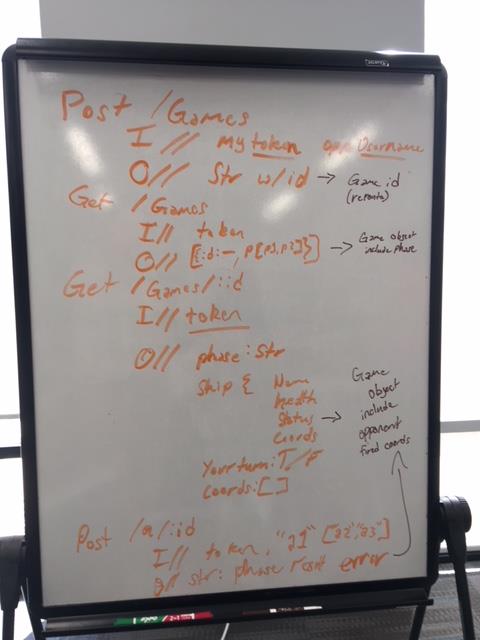 Post /Games
I // my token opp Username
O// Str w/id → Game id
Get /Games
I// token
O// [{id:—, P[P1,P2]}] → Game Object
include phase
Get /Games/:id
I// token
O// phase: Str
Ship { Name
Health
Status →
Coords
Game
Object
include
opponent
fired coords
Your turn: T/F
Coords: []
Post /a/:id
I// token, "a1" ["a2","a3"]
O// str: phase result error